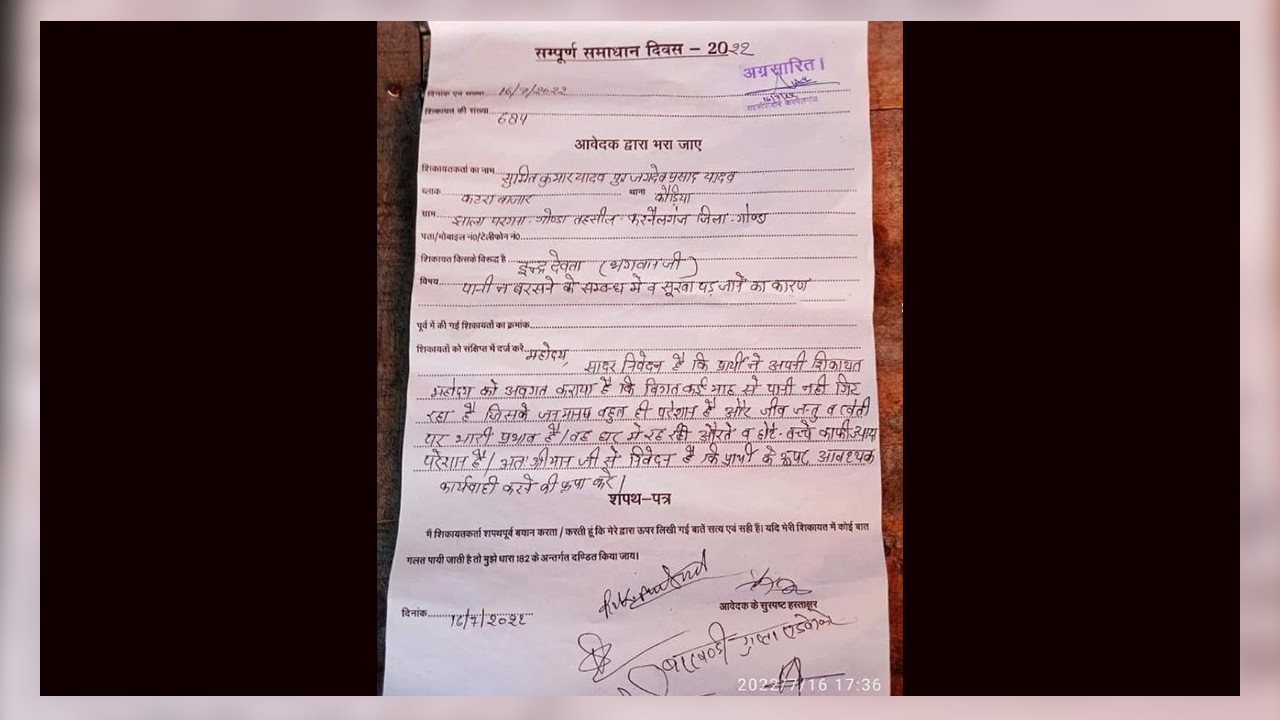 सम्पूर्ण समाधान दिवस – 2022
अग्रसारित।
16/7/22
दिनांक एवं संख्या 16/7/2022
शिकायत की संख्या 684
आवेदक द्वारा भरा जाए
शिकायतकर्ता का नाम सुमित कुमार यादव पुत्र जगदेव प्रसाद यादव
ब्लाक कटरा बाजार थाना कौड़िया
ग्राम झाला परगना-गोण्डा तहसील-करनैलगंज जिला-गोण्डा
पता/मोबाइल नं0/टेलीफोन नं0
शिकायत किसके विरूद्ध है इन्द्र देवता (भगवान जी)
विषय पानी न बरसने के सम्बन्ध में व सूखा पड़ जाने का कारण
पूर्व में की गई शिकायतों का क्रमांक
शिकायतों को संक्षिप्त में दर्ज करें महोदय,
सादर निवेदन है कि प्रार्थी ने अपनी शिकायत
महोदय को अवगत कराया है कि विगत कई माह से पानी नही गिर
रहा है जिसके जनमानस बहुत ही परेशान है और जीव जन्तु व खेती
पर भारी प्रभाव है। घर में रह रही औरते व छोटे-बच्चे काफी
परेशान है। अतः श्रीमान जी से निवेदन है कि प्रार्थी के ऊपर आवश्यक
कार्यवाही करने की कृपा करे।
शपथ–पत्र
मैं शिकायतकर्ता शपथपूर्व बयान करता / करती हूं कि मेरे द्वारा ऊपर लिखी गई बातें सत्य एवं सही हैं। यदि मेरी शिकायत में कोई बात
गलत पायी जाती है तो मुझे धारा 182 के अन्तर्गत दण्डित किया जाय।
आवेदक के सुस्पष्ट हस्ताक्षर
दिनांक 16/7/2022
गुप्ता एडवोकेट
2022/7/16 17:36